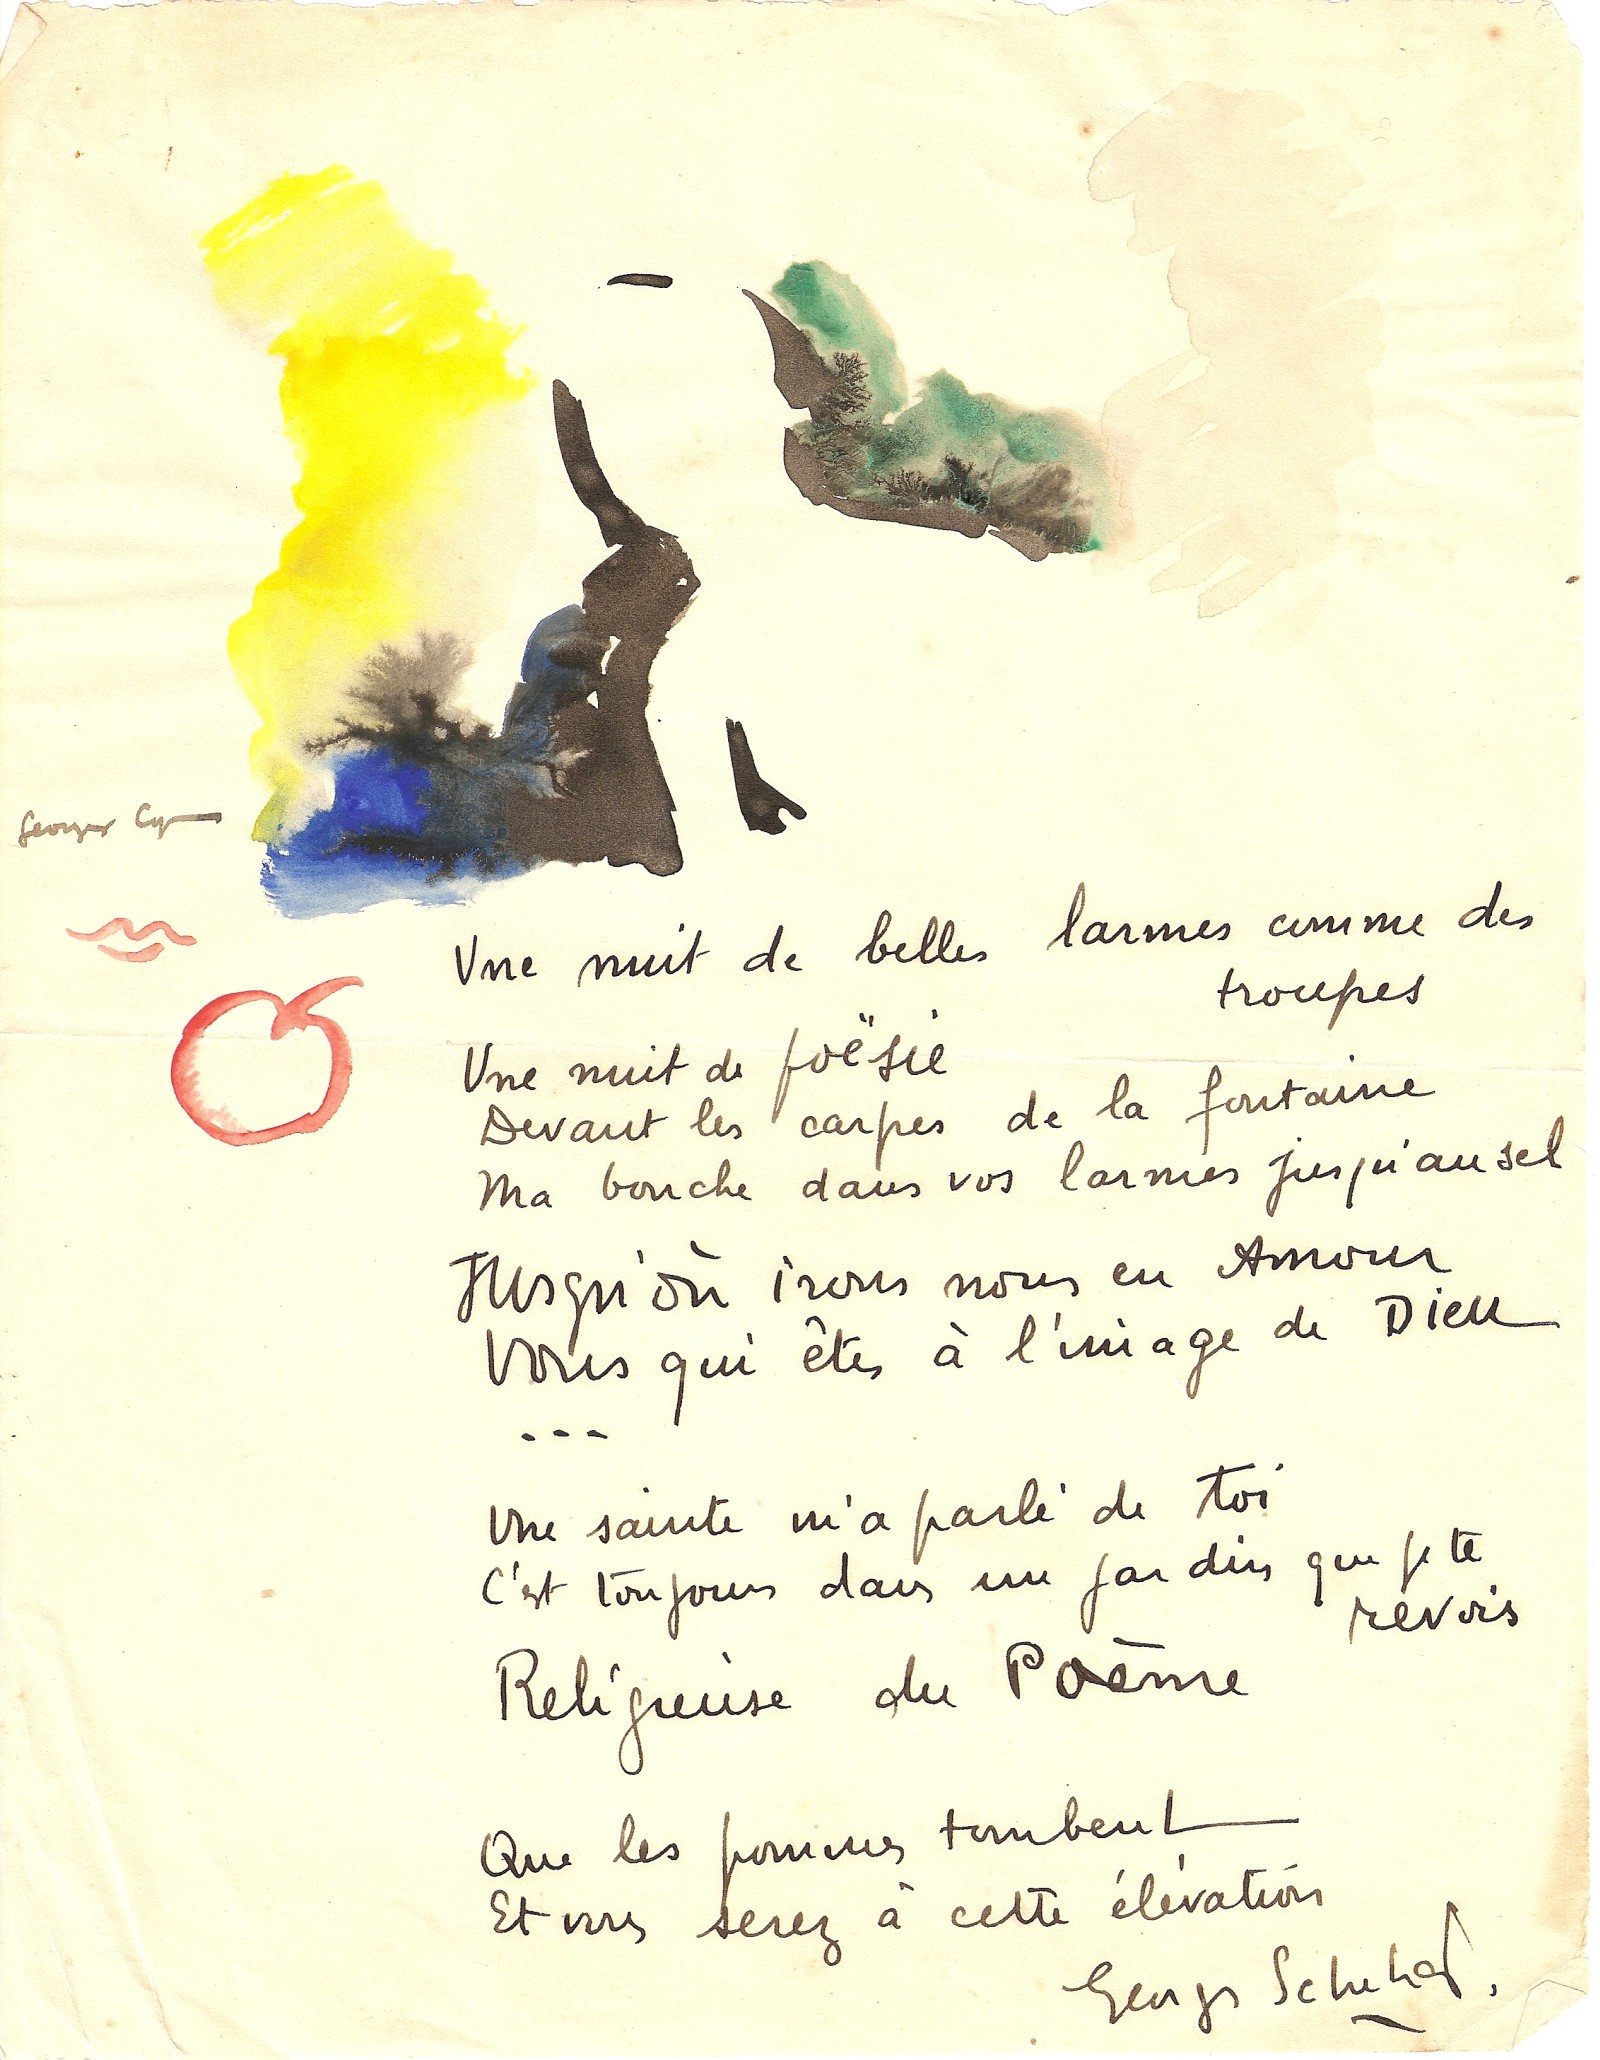 Georges Cyr
Une nuit de belles larmes comme des
troupes
Une nuit de poësie
Devant les carpes de la fontaine
Ma bouche dans vos larmes jusqu'au sel
Jusqu'où irons nous en Amour
Vous qui êtes à l'image de Dieu
---
Une sainte m'a parlé de toi
C'est toujours dans un jardin que je te
revois
Religieuse du Poème
Que les pommes tombent
Et vous serez à cette élévation
Georges Schehadé.